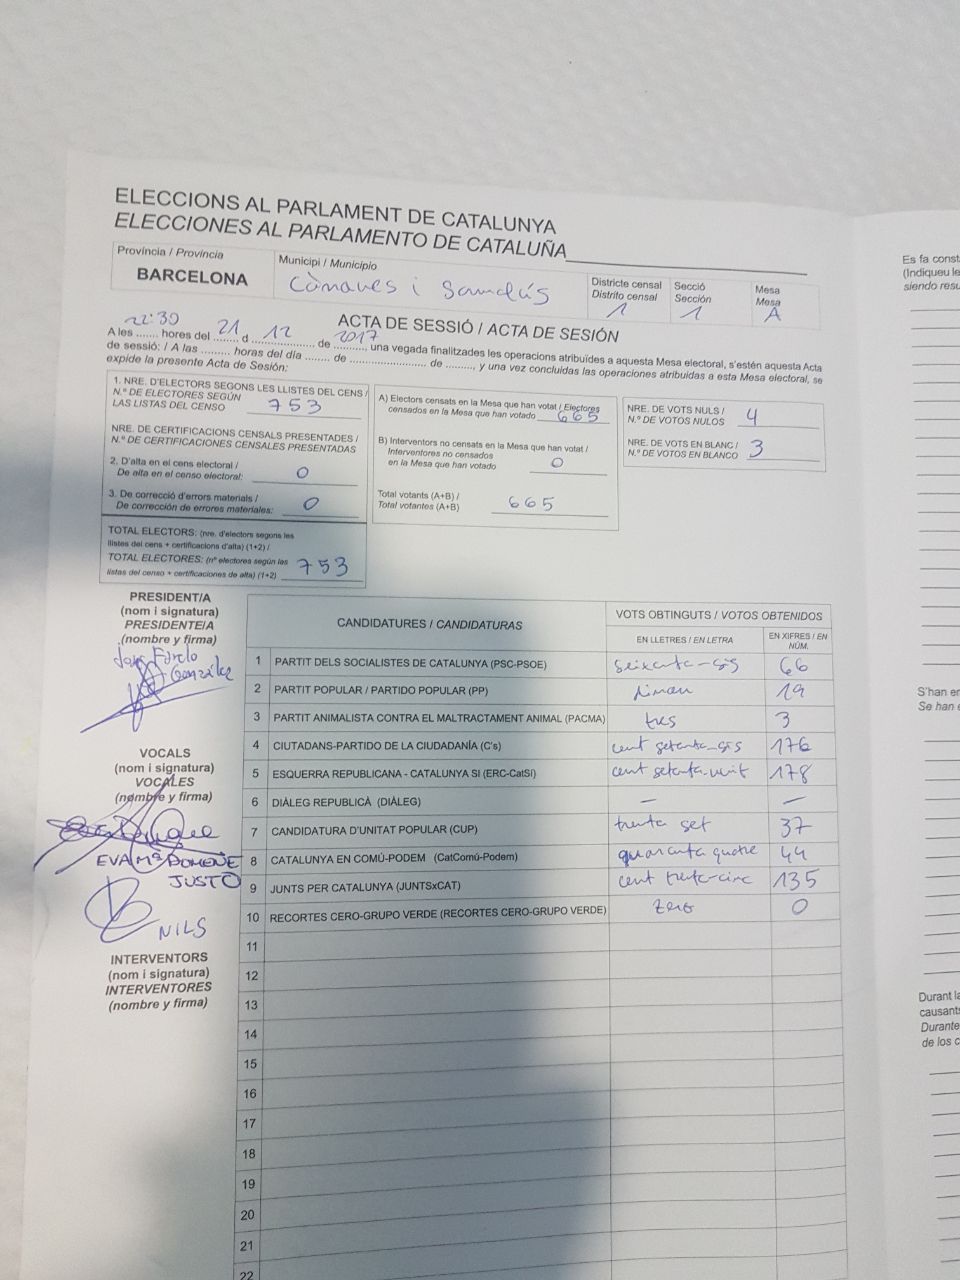 ELECCIONS AL PARLAMENT DE CATALUNYA
ELECCIONES AL PARLAMENTO DE CATALUÑA
Província / Provincia
BARCELONA
Municipi / Municipio
Cànoves i Samalús
Districte censal
Distrito censal
1
Secció
Sección
1
Mesa
Mesa
A
ACTA DE SESSIÓ / ACTA DE SESIÓN
22:30 21 12 2017
A les ....... hores del ........ d .................... de .........., una vegada finalitzades les operacions atribuïdes a aquesta Mesa electoral, s'estén aquesta Acta
de sessió: / A las ......... horas del día ........ de ........................ de .........., y una vez concluidas las operaciones atribuidas a esta Mesa electoral, se
expide la presente Acta de Sesión:
1. NRE. D'ELECTORS SEGONS LES LLISTES DEL CENS /
N.º DE ELECTORES SEGÚN
LAS LISTAS DEL CENSO 753
NRE. DE CERTIFICACIONS CENSALS PRESENTADES /
N.º DE CERTIFICACIONES CENSALES PRESENTADAS
2. D'alta en el cens electoral /
De alta en el censo electoral: 0
3. De correcció d'errors materials /
De corrección de errores materiales: 0
TOTAL ELECTORS: (nre. d'electors segons les
llistes del cens + certificacions d'alta) (1+2) /
TOTAL ELECTORES: (nº electores según las
listas del censo + certificaciones de alta) (1+2) 753
A) Electors censats en la Mesa que han votat / Electores
censados en la Mesa que han votado 665
B) Interventors no censats en la Mesa que han votat /
Interventores no censados
en la Mesa que han votado 0
Total votants (A+B) /
Total votantes (A+B) 665
NRE. DE VOTS NULS /
N.º DE VOTOS NULOS 4
NRE. DE VOTS EN BLANC /
N.º DE VOTOS EN BLANCO 3
PRESIDENT/A
(nom i signatura)
PRESIDENTE/A
(nombre y firma)
González
VOCALS
(nom i signatura)
VOCALES
(nombre y firma)
EVA Mª DOMENE
JUSTO
NILS
INTERVENTORS
(nom i signatura)
INTERVENTORES
(nombre y firma)
CANDIDATURES / CANDIDATURAS
VOTS OBTINGUTS / VOTOS OBTENIDOS
EN LLETRES / EN LETRA
EN XIFRES / EN NÚM.
1 PARTIT DELS SOCIALISTES DE CATALUNYA (PSC-PSOE) seixanta-sis 66
2 PARTIT POPULAR / PARTIDO POPULAR (PP) dinou 19
3 PARTIT ANIMALISTA CONTRA EL MALTRACTAMENT ANIMAL (PACMA) tres 3
4 CIUTADANS-PARTIDO DE LA CIUDADANÍA (C's) cent setanta-sis 176
5 ESQUERRA REPUBLICANA - CATALUNYA SI (ERC-CatSí) cent setanta-vuit 178
6 DIÀLEG REPUBLICÀ (DIÀLEG) — —
7 CANDIDATURA D'UNITAT POPULAR (CUP) trenta set 37
8 CATALUNYA EN COMÚ-PODEM (CatComú-Podem) quaranta quatre 44
9 JUNTS PER CATALUNYA (JUNTSxCAT) cent trenta-cinc 135
10 RECORTES CERO-GRUPO VERDE (RECORTES CERO-GRUPO VERDE) zero 0
11
12
13
14
15
16
17
18
19
20
21
22
Es fa const
(Indiqueu le
siendo resu
S'han e
Se han e
Durant la
causants
Durante
de los c